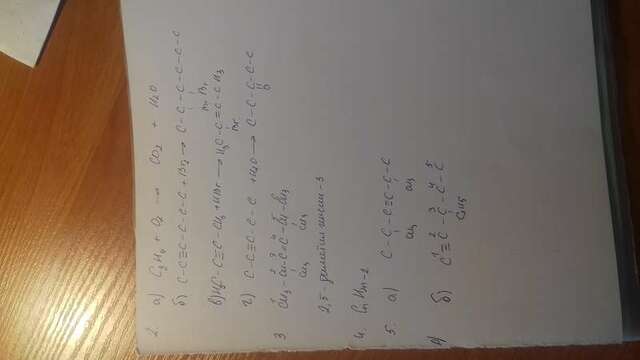 2. а) C2H4 + O2 → CO2 + H2O
б) C-C≡C-C-C-C + Br2 → C-C-C-C-C-C
Br Br
в) H3C-C≡C-CH3 + HBr → H3C-C=C-CH3
Br
г) C-C≡C-C-C + H2O → C-C-C-C-C
O
3 1 2 3 4 5
CH3-CH-C≡C-CH-CH3
CH3 CH3
2,5-диметил гексин-3
4. CnH2n-2
5. а) C-C-C≡C-C-C
CH3 CH3
б) 1 2 3 4 5
C≡C-C-C-C
C2H5